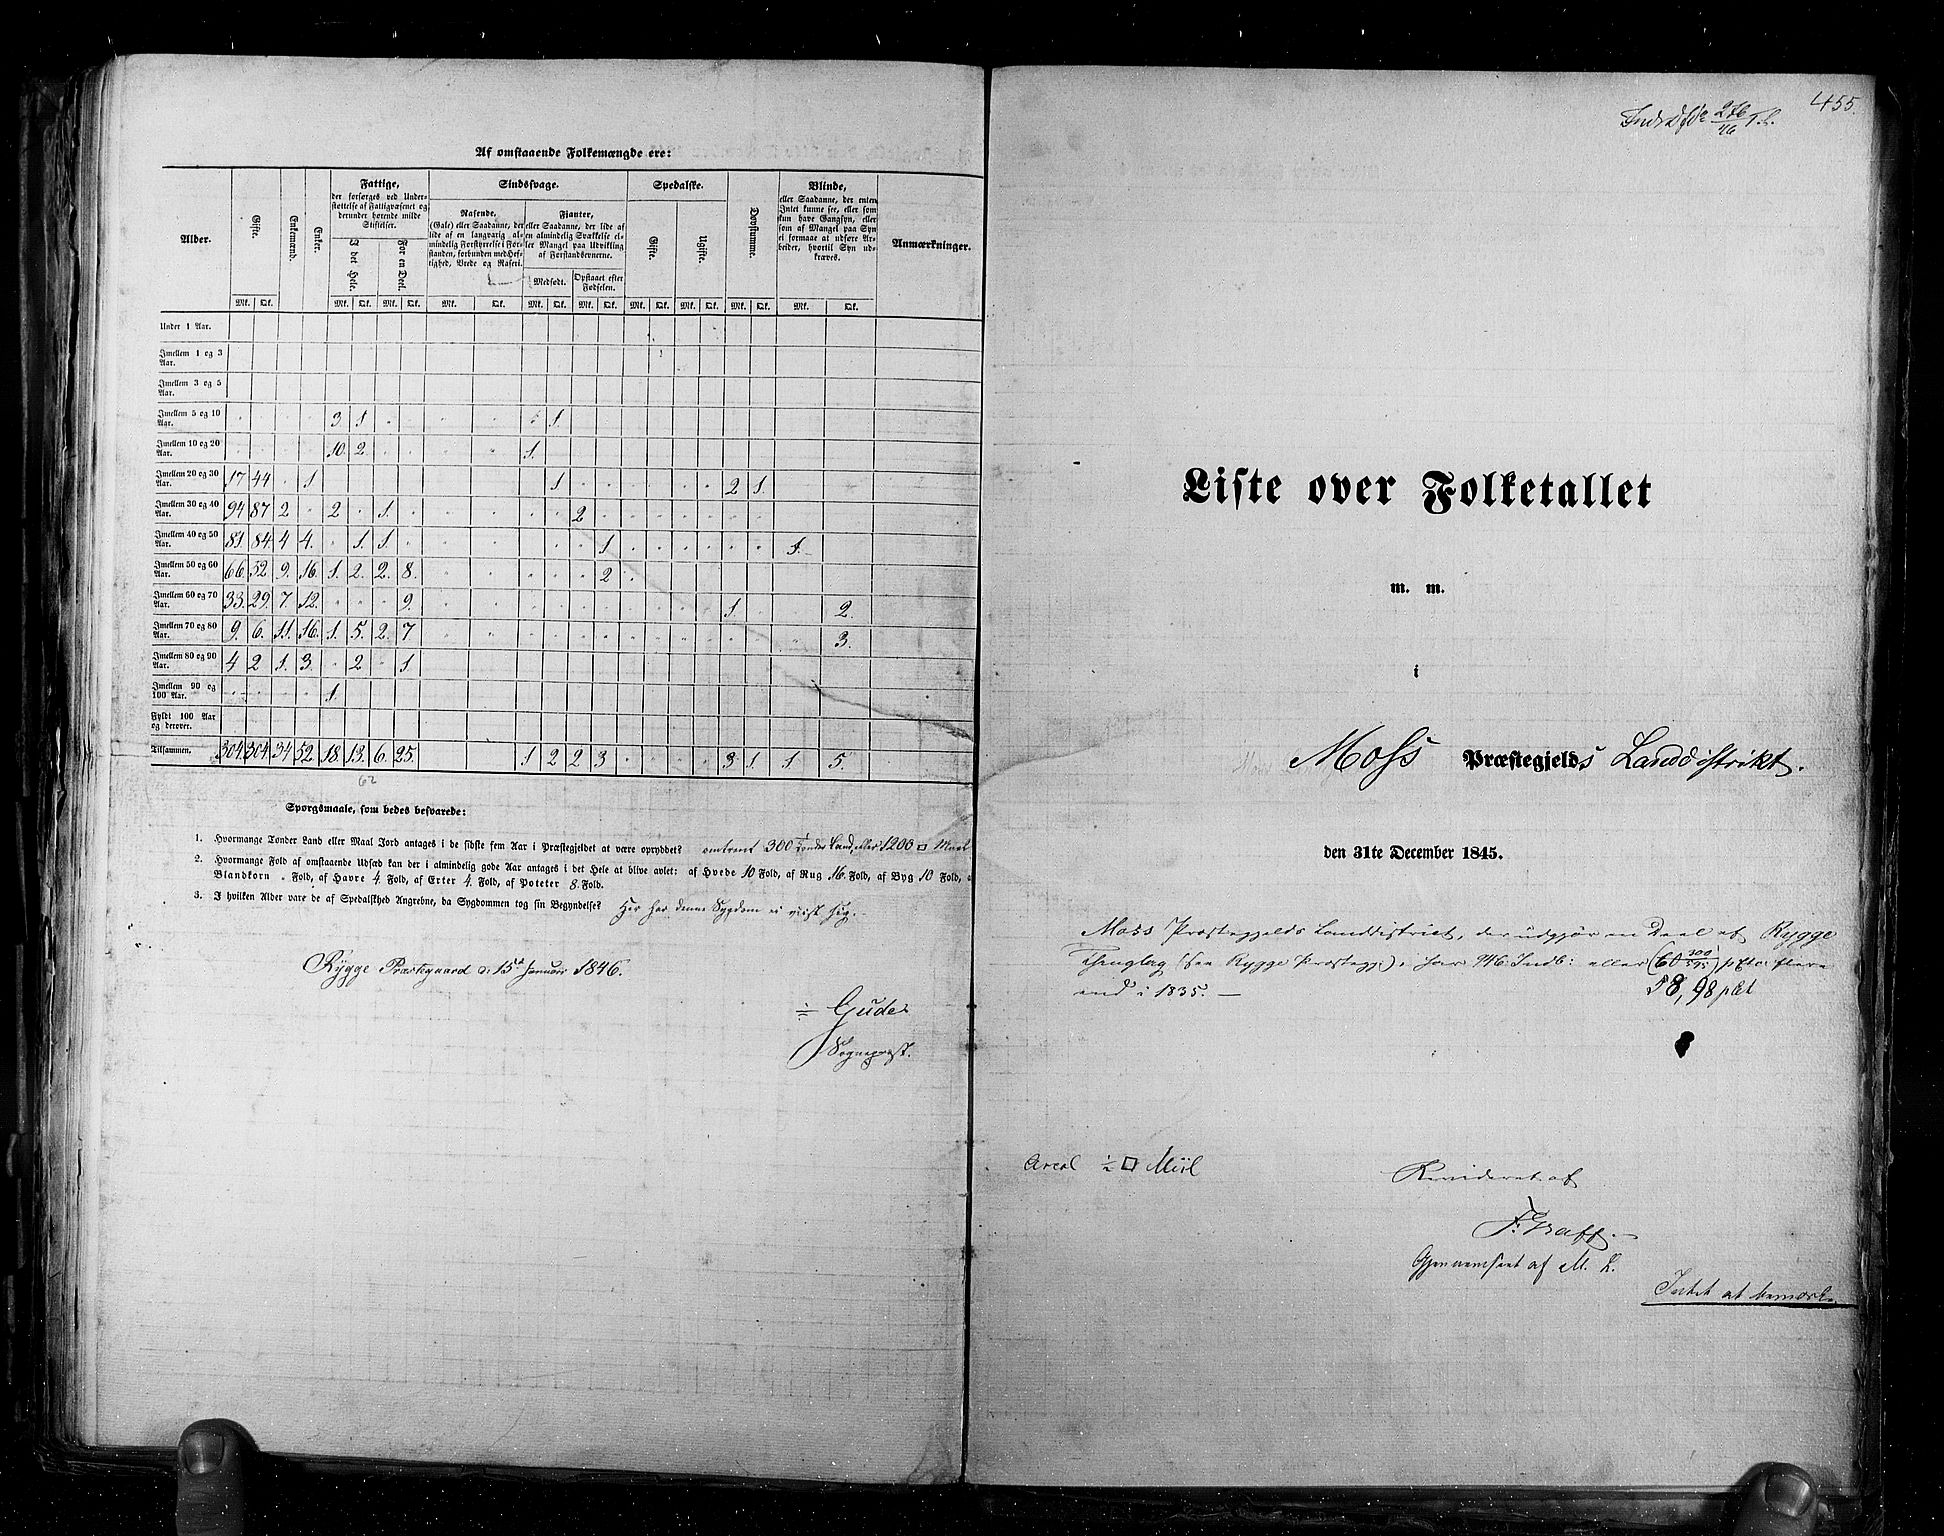 Af omstaaende Folkemængde ere:
Alder. Gifte. Enkemænd. Enker. Fattige, Sindssvage. Spedalske. Døvstumme. Blinde, Anmærkninger.
der forsørges ved Under-
støttelse af Fattigvæsenet og
derunder hørende milde
Stiftelser.
I det Hele. For en Deel.
Rasende,
(Gale) eller Saadanne, der
lide af en langvarig al-
mindelig Forstyrrelse i For-
standen, forbunden med Hef-
tighed, Vrede og Raseri.
Fianter,
eller Saadanne, der lide af
en almindelig Svækkelse el-
ler Mangel paa Udvikling
af Forstandsevnerne.
Medfødt. Opstaaet efter Fødselen.
Gifte. Ugifte.
eller Saadanne, der enten
Intet kunne see, eller som
kun have Gangsyn, eller
som af Mangel paa Syn
ei formaae at udføre Ar-
beider, hvortil Syn ud-
kræves.
Mk. Qk. Mk. Qk. Mk. Qk. Mk. Qk. Mk. Qk. Mk. Qk. Mk. Qk. Mk. Qk. Mk. Qk. Mk. Qk.
Under 1 Aar.
Imellem 1 og 3 Aar.
Imellem 3 og 5 Aar.
Imellem 5 og 10 Aar. 3 1 1.
Imellem 10 og 20 Aar. 10. 2. 1.
Imellem 20 og 30 Aar. 17 44 1 1 2 1.
Imellem 30 og 40 Aar. 94 87 2 2 1. 2
Imellem 40 og 50 Aar. 81. 84 4 4. 1. 1. 1 1.
Imellem 50 og 60 Aar. 66. 52. 9. 16. 1. 2. 2. 8. 2
Imellem 60 og 70 Aar. 33. 29. 7. 12. 9. 1 2.
Imellem 70 og 80 Aar. 9. 6. 11. 16. 1. 5. 2. 7 3.
Imellem 80 og 90 Aar. 4 2 1. 3. 2 1
Imellem 90 og 100 Aar. 1.
Fyldt 100 Aar og derover.
Tilsammen. 304. 304. 34 52 18. 13. 6. 25. 1 2 2 3 3 1. 1. 5.
62
Spørgsmaale, som bedes besvarede:
1. Hvormange Tønder Land eller Maal Jord antages i de sidste fem Aar i Præstegjeldet at være opryddet? omtrent 300 Tønder Land, eller 1200 □ Maal
2. Hvormange Fold af omstaaende Udsæd kan der i almindelig gode Aar antages i det Hele at blive avlet: af Hvede 10 Fold, af Rug 16 Fold, af Byg 10 Fold, a
Blandkorn " Fold, af Havre 4 Fold, af Erter 4 Fold, af Poteter 8 Fold.
3. I hvilken Alder vare de af Spedalskhed Angrebne, da Sygdommen tog sin Begyndelse? Her har denne Sygdom ei viist sig.
Rygge Præstegaard d: 15de Januar 1846.
Gude
Sognepræst.
455.
Liste over Folketallet
m. m.
i
Moss Præstegjelds Landdistrikt.
den 31te December 1845.
Moss Præstegjelds Landdistrict, der udgjør en Deel af Rygge
Thinglag (See Rygge Præstegj:), har 946 Indb: eller (60 300/595) pCto flere
end i 1835. —
58,98 pCt
Areal ½ □ Miil
Revideret af
F: Graff.
Gjennemseet af M. L.
Intet at bemærke